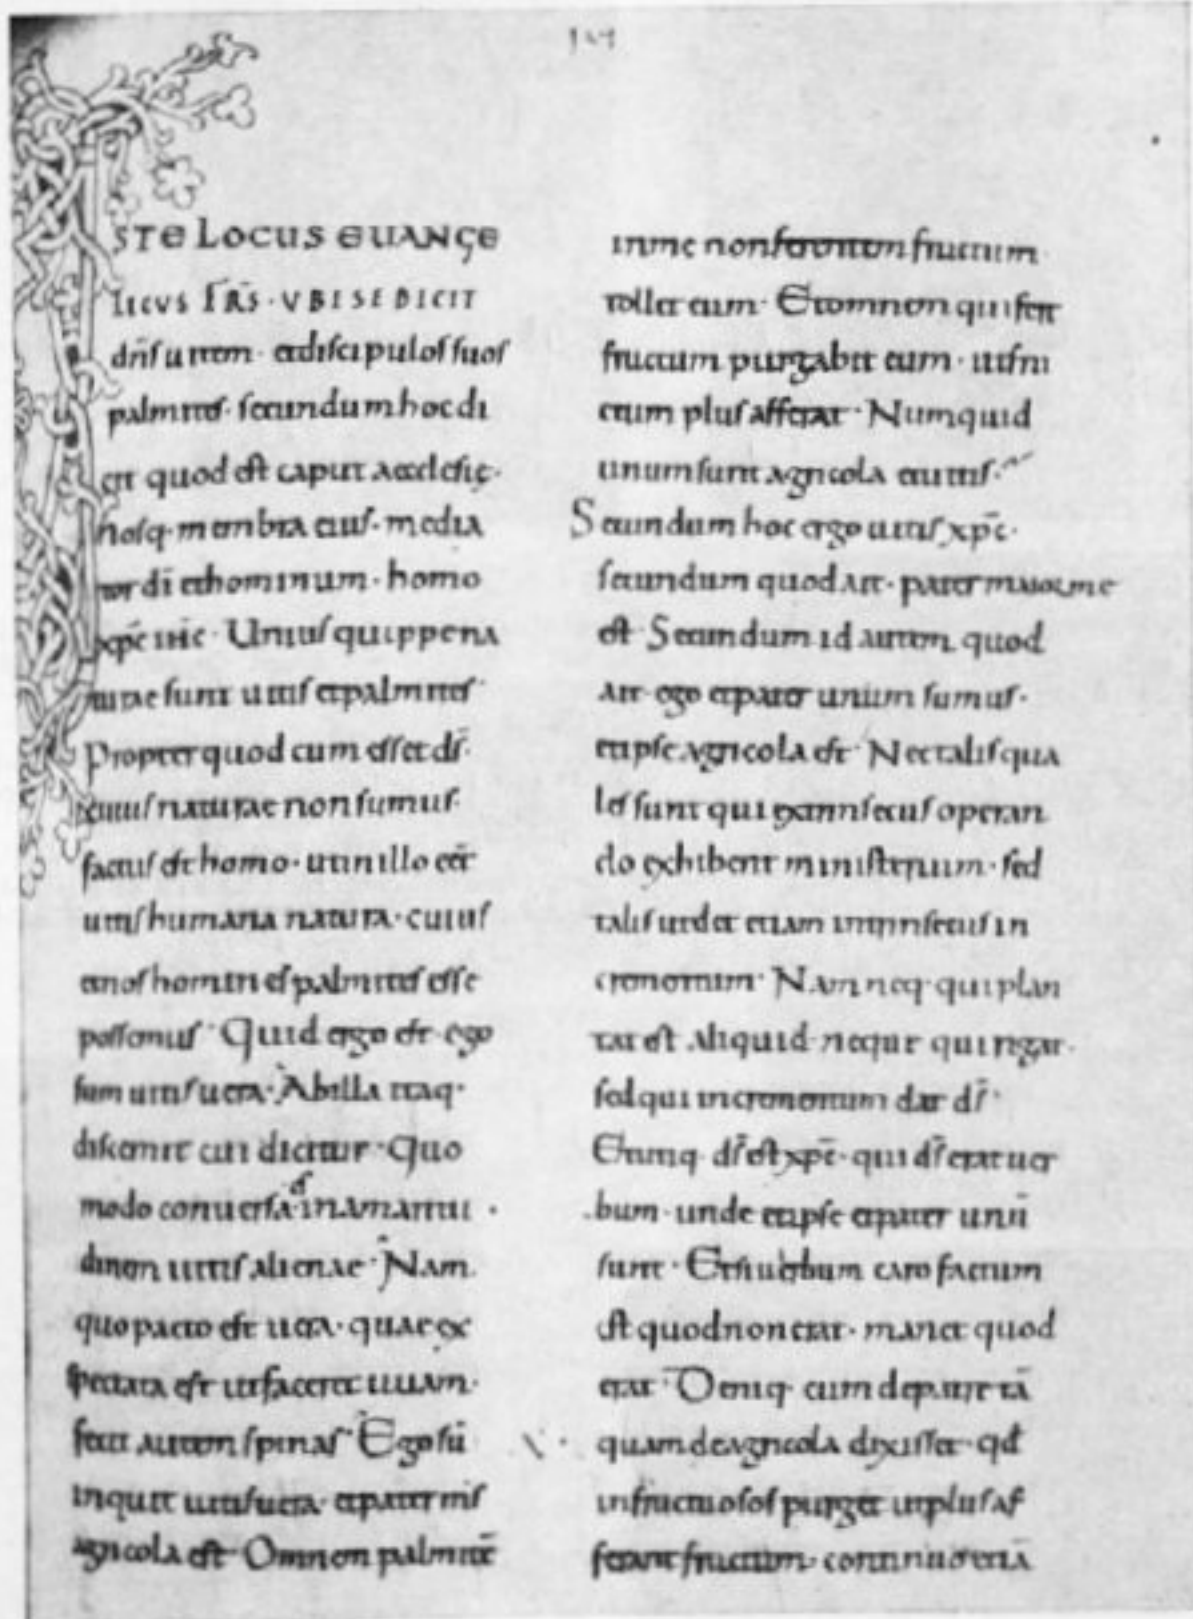 ISTE LOCUS EUANGE
LICUS FR̄S · UBI SE DICIT
dn̄s uitem · et discipulos suos
palmites · secundum hoc di
cit quod est caput aecclesię ·
nosq· membra eius · media
tor dī et hominum · homo
xp̄c ih̄c · Unius quippe na
turae sunt uitis et palmites ·
Propter quod cum esset ds̄ ·
cuius naturae non sumus ·
factus est homo · ut in illo eēt
uitis humana natura · cuius
et nos homines palmites esse
possemus · Quid ergo est · ego
sum uitis uera · Ab illa itaq·
discernit cui dicitur · Quo
modo conuersa es in amaritu
dinem uitis alienae · Nam
quo pacto est uera · quae ex
spectata est ut faceret uuam ·
fecit autem spinas · Ego sū
inquit uitis uera · et pater ms̄
agricola est · Omnem palmitē
in me non ferentem fructum
tollet eum · Et omnem qui fert
fructum purgabit eum · ut fru
ctum plus afferat · Numquid
unum sunt agricola et uitis ·
Secundum hoc ergo uitis xp̄c ·
secundum quod ait · pater maior me
est · Secundum id autem quod
ait · ego et pater unum sumus ·
et ipse agricola est · Nec talis qua
les sunt qui extrinsecus operan
do exhibent ministerium · sed
talis ut det etiam intrinsecus in
crementum · Nam neq· qui plan
tat est aliquid · neque qui rigat ·
sed qui incrementum dat ds̄ ·
Et utiq· ds̄ est xp̄c · qui ds̄ erat uer
bum · unde et ipse et pater unū
sunt · Et si uerbum caro factum
est quod non erat · manet quod
erat · Deniq· cum de patre tā
quam de agricola dixisset · qd̄
infructuosos purget ut plus af
ferant fructum · continuo etiā